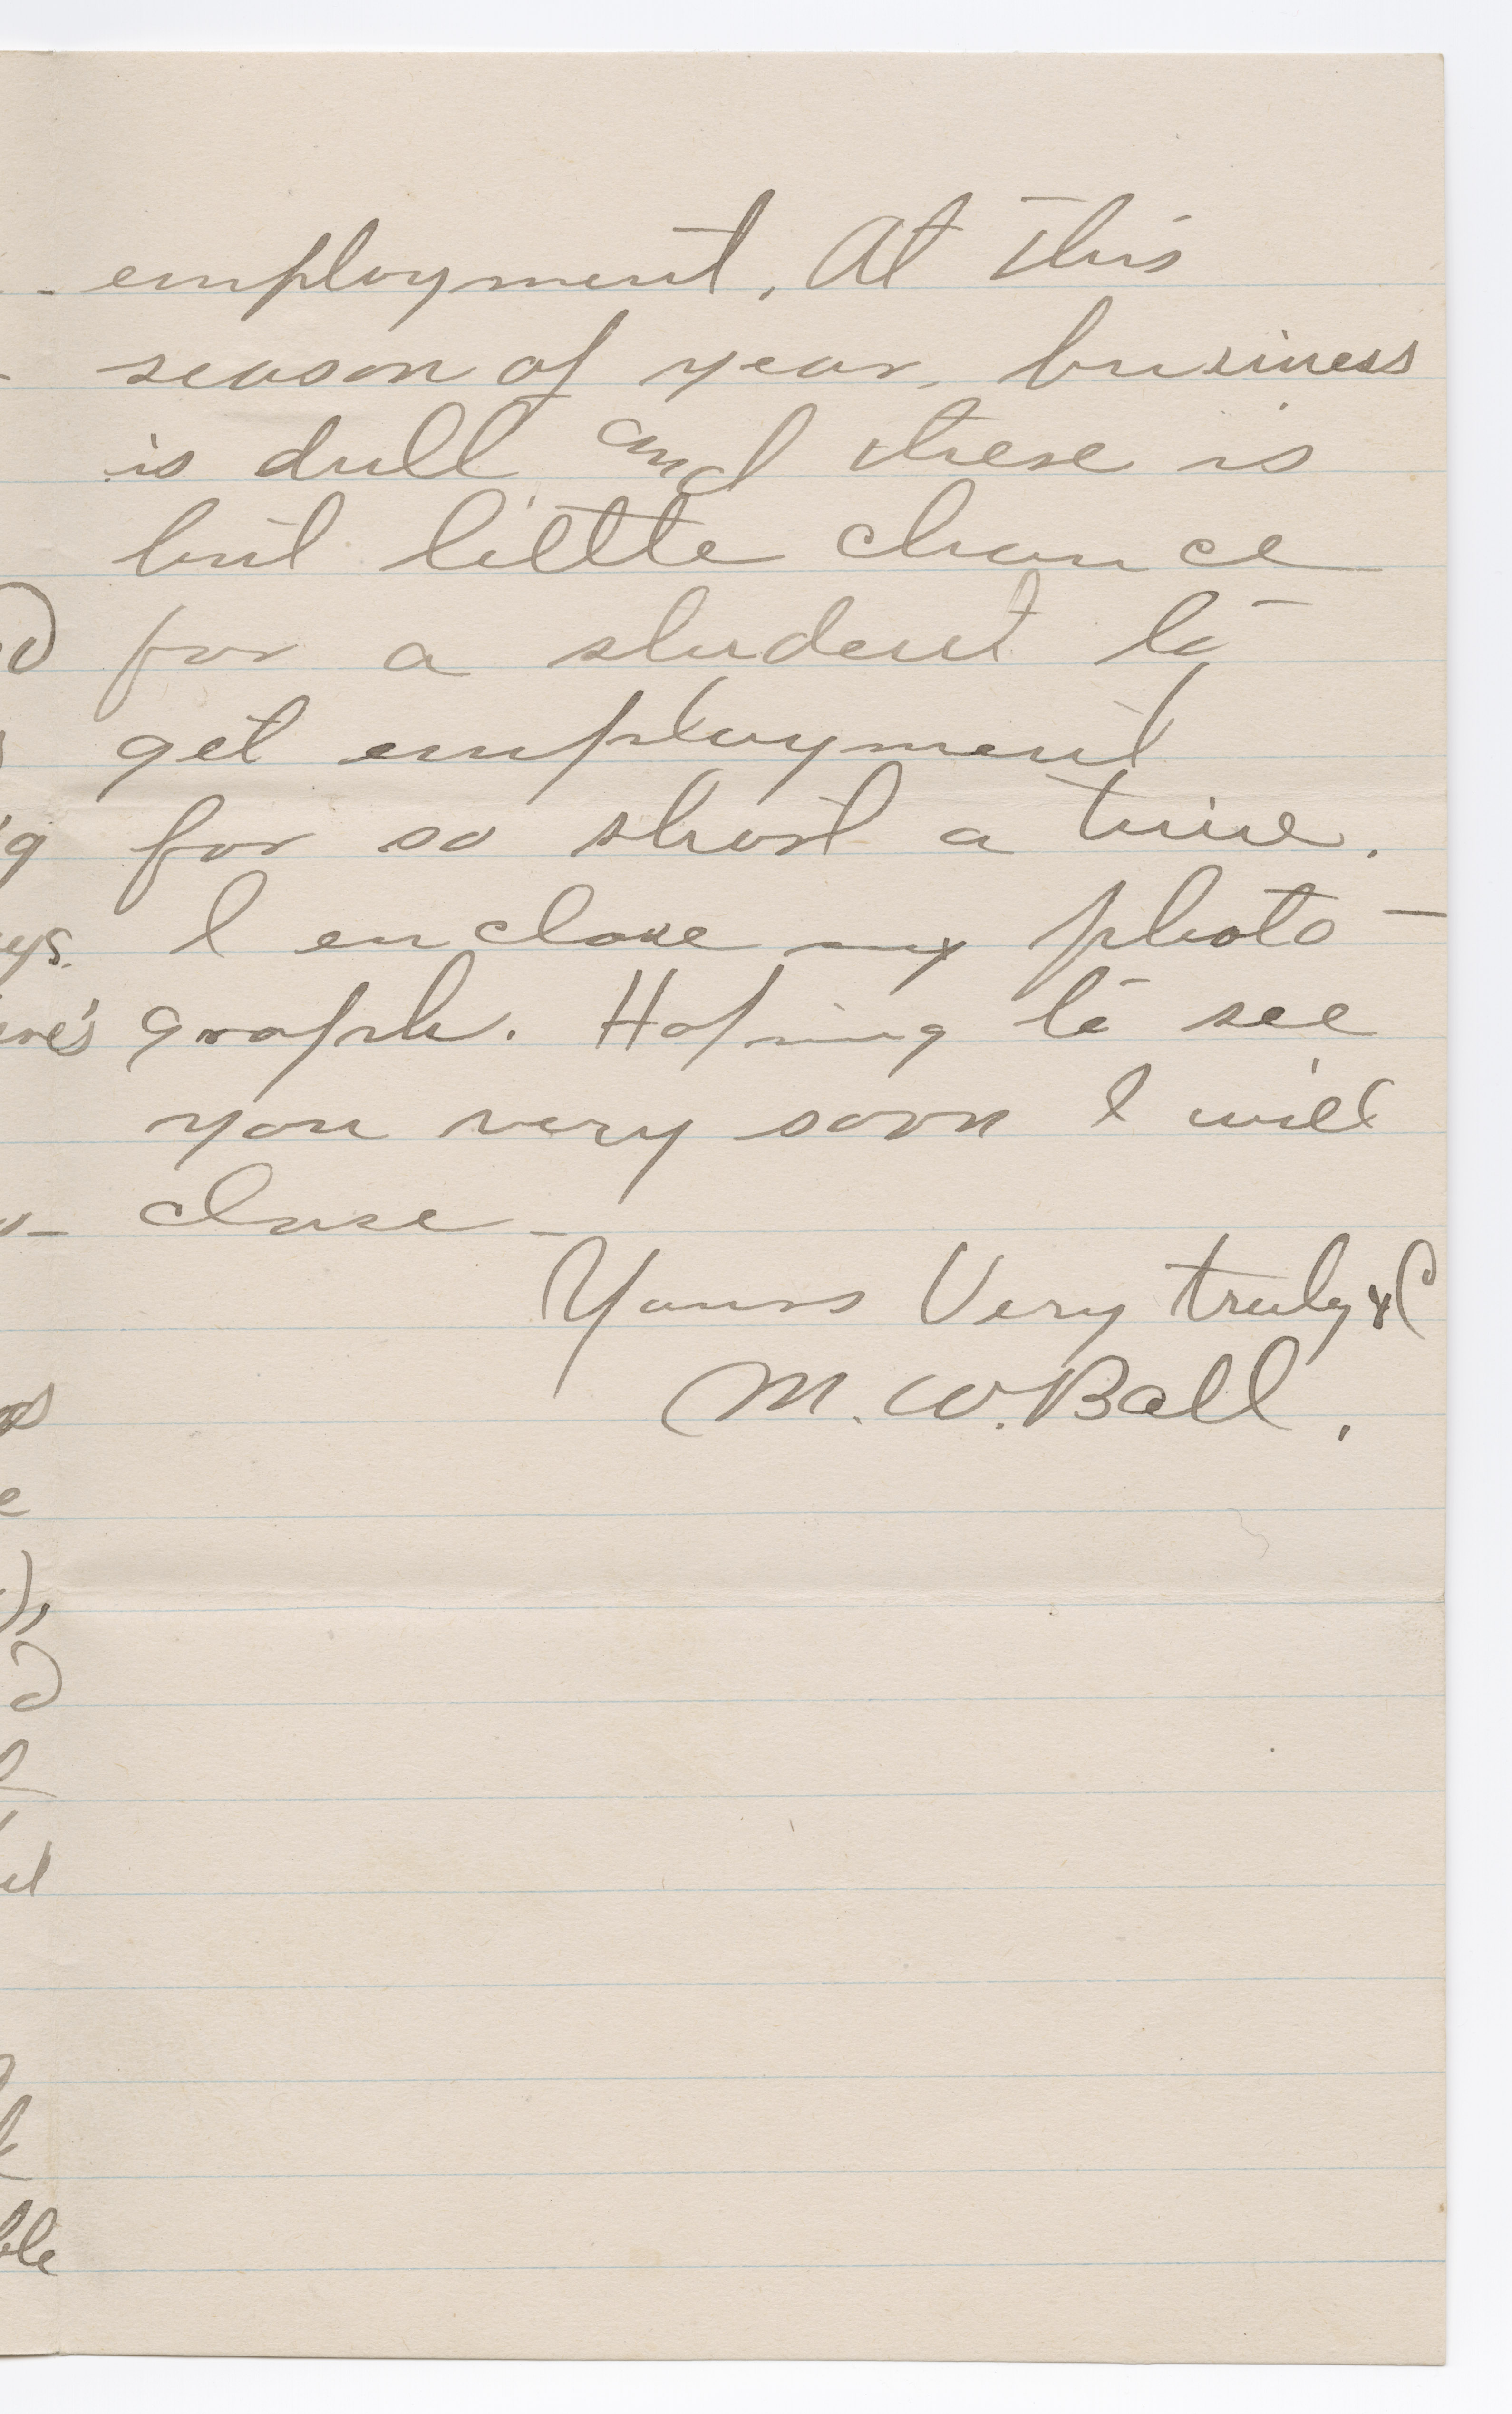 employment. At this
season of year, business
is dull and there is
but little chance
for a student to
get employment
for so short a time.
I enclose my photo-
graph. Hoping to see
you very soon I will
close -
Yours Very truly &C
M. W. Ball.